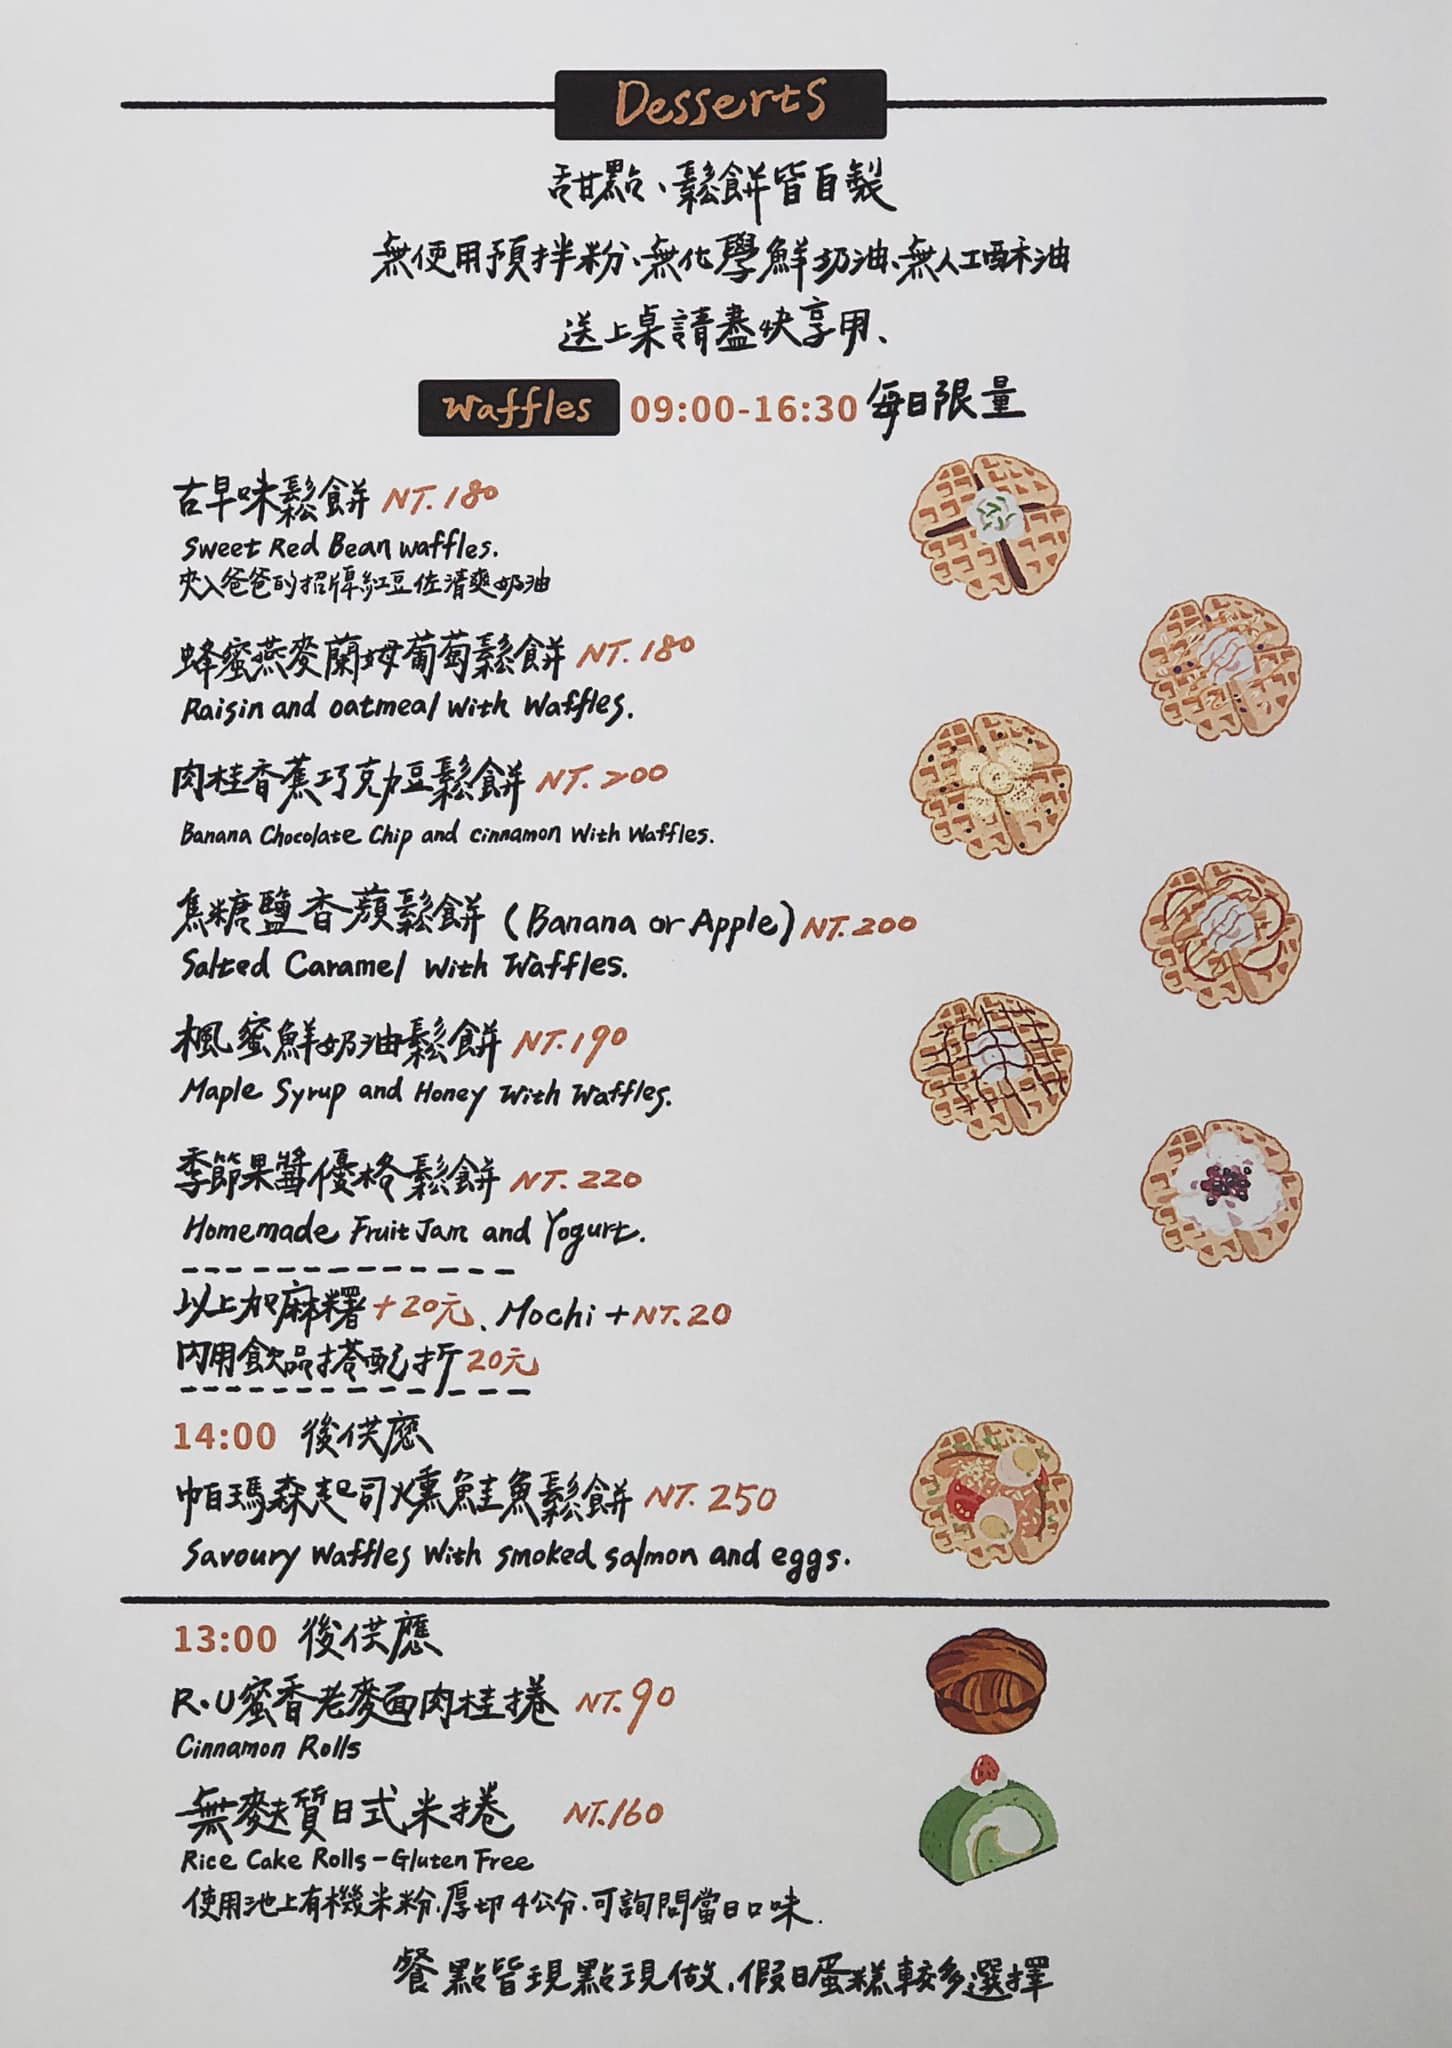 Desserts
甜點、鬆餅皆自製
無使用預拌粉、無化學鮮奶油、無人工酥油
送上桌請盡快享用、
Waffles 09:00-16:30 每日限量
古早味鬆餅 NT.180
Sweet Red Bean waffles.
夾入爸爸的招牌紅豆佐清爽奶油
蜂蜜燕麥蘭姆葡萄鬆餅 NT.180
Raisin and oatmeal with Waffles.
肉桂香蕉巧克力豆鬆餅 NT.200
Banana Chocolate Chip and cinnamon With Waffles.
焦糖鹽香蘋鬆餅 (Banana or Apple) NT.200
Salted Caramel with Waffles.
楓蜜鮮奶油鬆餅 NT.190
Maple Syrup and Honey With Waffles.
季節果醬優格鬆餅 NT.220
Homemade Fruit Jam and Yogurt.
以上加麻糬+20元、Mochi +NT.20
內用飲品搭配折20元
14:00 後供應
帕瑪森起司燻鮭魚鬆餅 NT.250
Savoury Waffles With smoked salmon and eggs.
13:00 後供應
R.U蜜香老麥面肉桂捲 NT.90
Cinnamon Rolls
無麩質日式米捲 NT.160
Rice Cake Rolls-Gluten Free
使用池上有機米粉.厚切4公分.可詢問當日口味.
餐點皆現點現做.假日蛋糕較多選擇